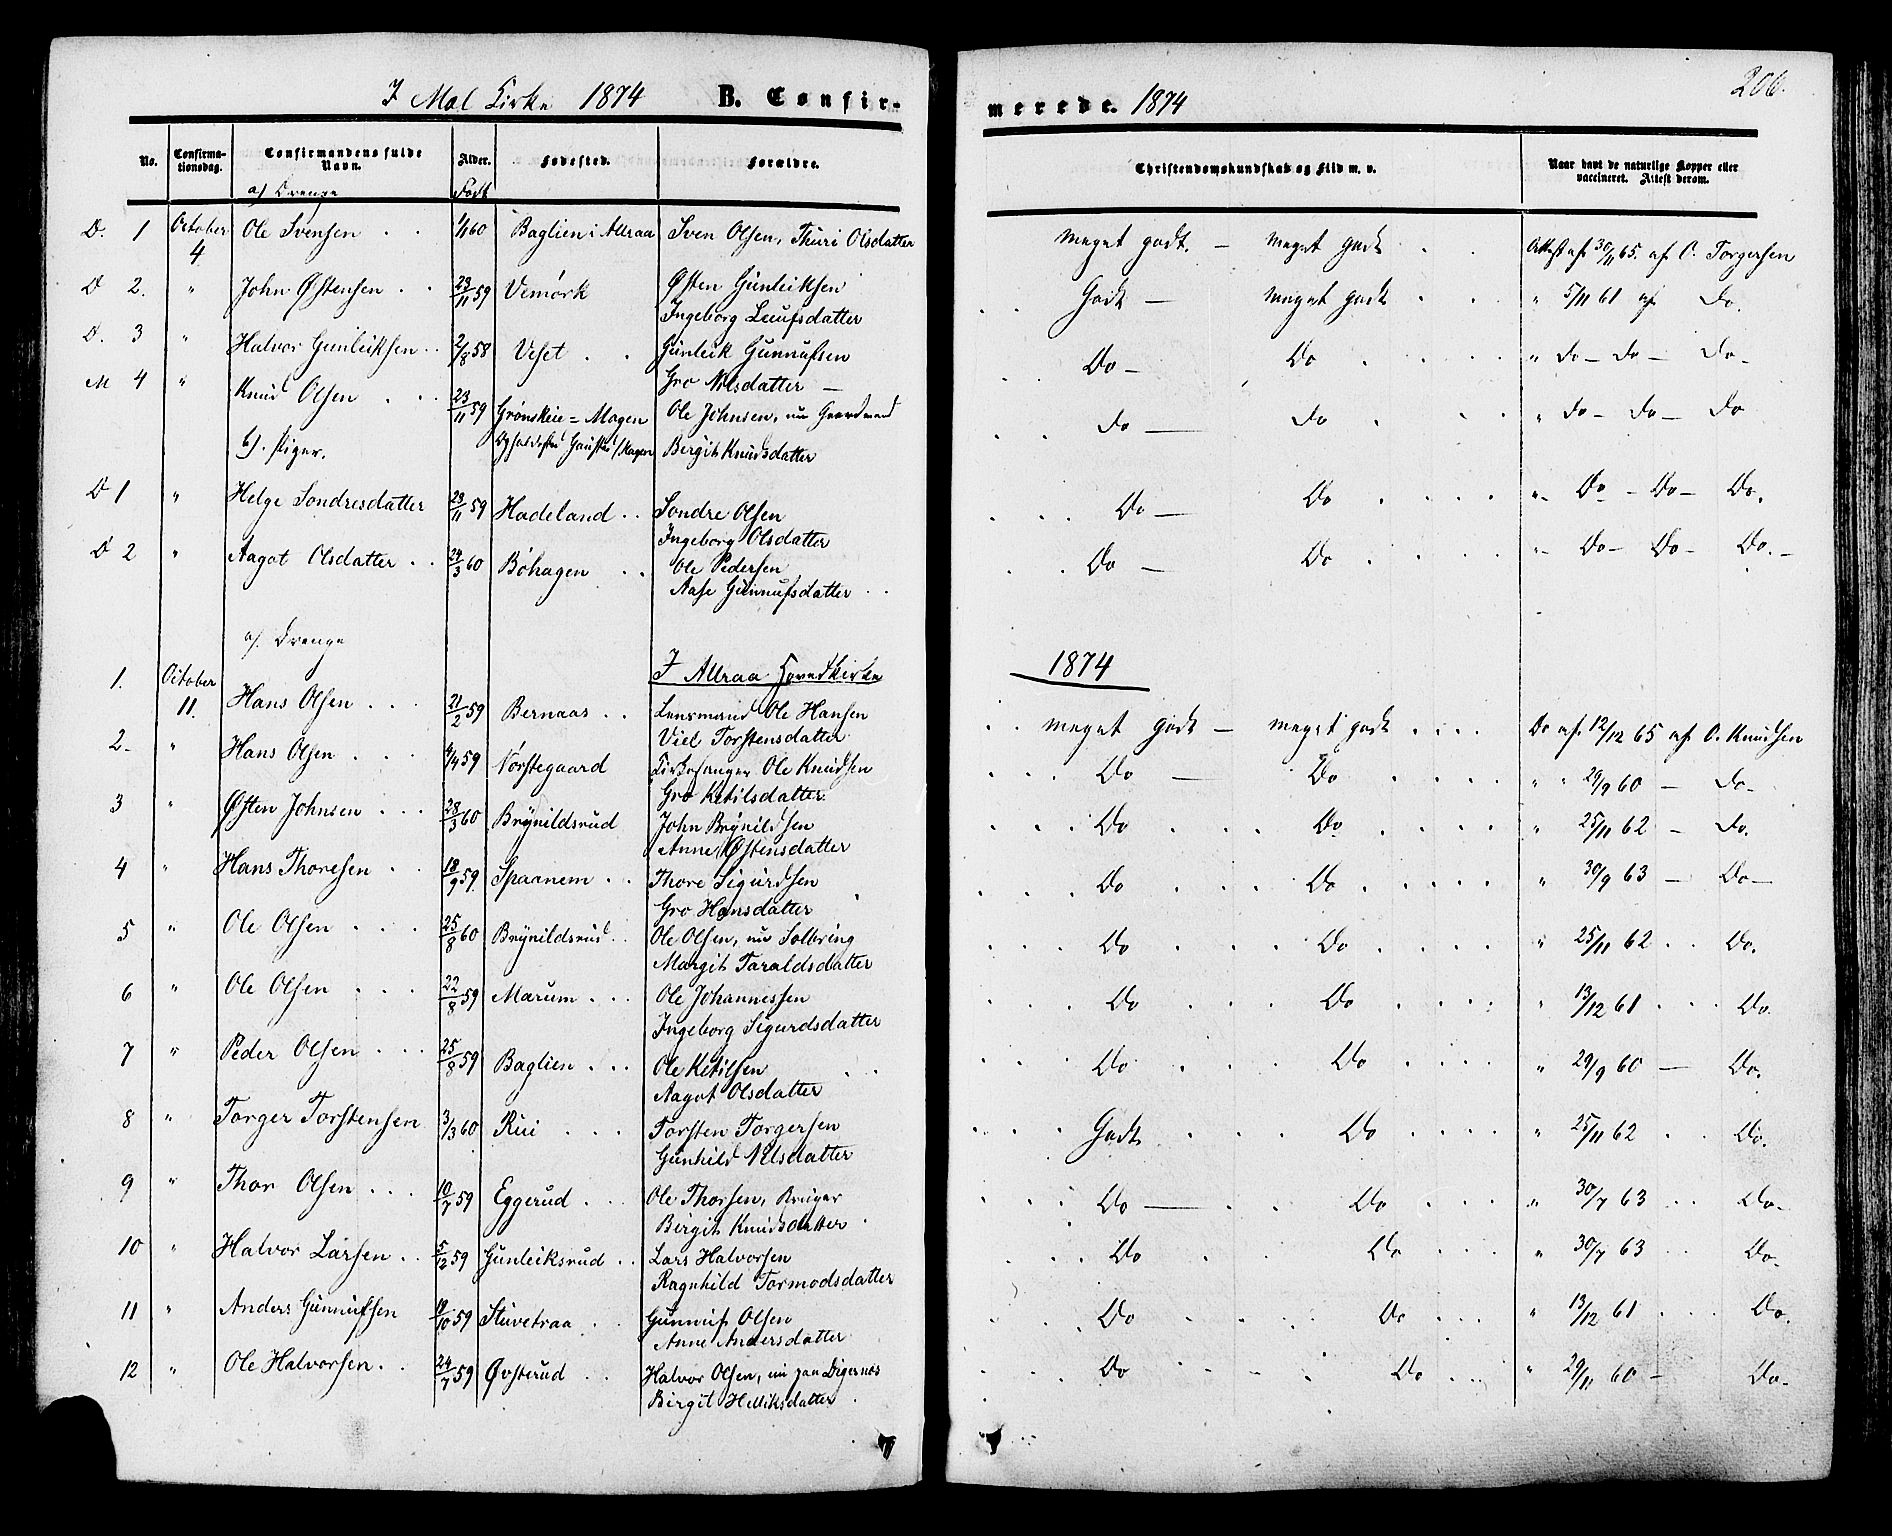 I Mæl Kirke 1874 B. Confir-
merede. 1874
206.
No. Confirma-tionsdag. Confirmandens fulde Navn. Alder. Fødested. Forældre. Christendomskundskab og Flid m. v. Naar havt de naturlige Kopper eller vaccineret. Attest derom.
a/ Drenge Født
D. 1 October 4. Ole Svensen 1/1 60 Baglien i Attraa Sven Olsen, Thuri Olsdatter meget godt. — meget godt Attest af 30/11 65. af O. Torgersen
D 2. " John Østensen 23/11 59 Vemörk Østen Gunleiksen Godt — meget godt " 5/11 61 af Do.
Ingeborg Leeufsdatter
D. 3 " Halvor Gunleiksen 2/8 58 Veset Gunleik Gunnufsen Do — Do " Do — Do — Do —
Gro Nilsdatter —
M 4 " Knud Olsen 23/11 59 Grønskeie = Mogen Ole Johnsen, nu Do — Do " Do — Do — Do
b). Piger. Birgit Knudsdatter
D 1 " Helge Sondresdatter 23/11 59 Hadeland Sondre Olsen Do — Do " Do — Do — Do.
Ingeborg Olsdatter
D 2 " Aagot Olsdatter 24/3 60 Böhagen Ole Pedersen Do — Do " Do — Do — Do. —
Aase Gunnufsdatter
a/. Drenge
I Attraa Hovedkirke 1874
1. October 11. Hans Olsen 21/2 59 Bernaas Lensmand Ole Hansen meget godt — meget godt Do af 12/12 65 af O. Knudsen
Viel Torstensdatter
2. " Hans Olsen 4/4 59 Nørstegaard Kirkesanger Ole Knudsen Do — Do " 29/9 60 — Do —
Gro Ketilsdatter
3 " Østen Johnsen 28/3 60 Brynildsrud John Brynildsen Do Do " 25/11 62 — Do.
Anne Østensdatter
4 " Hans Thoresen 18/9 59 Spaanem Thore Sigurdsen Do Do " 30/9 63 — Do —
Gro Hansdatter
5 " Ole Olsen 25/8 60 Brynildsrud Ole Olsen, nu Solbring Do Do " 25/11 62 Do.
Margit Taraldsdatter
6 " Ole Olsen 22/8 59 Marum Ole Johannessen Do Do " 13/12 61 Do.
Ingeborg Sigurdsdatter
7 " Peder Olsen 25/8 59 Baglien Ole Ketilsen Do Do " 29/9 60 — Do.
Aagot Olsdatter
8 " Torger Torstensen 3/3 60 Rui Torsten Torgersen Godt Do " 25/11 62 Do.
Gunhild Nilsdatter
9 " Thor Olsen 10/7 59 Eggerud Ole Thorsen, Bruger Do — Do " 30/7 63 Do —
Birgit Knudsdatter
10 " Halvor Larsen 5/12 59 Gunleiksrud Lars Halvorsen Do Do " 30/7 63 Do —
Ragnhild Tormodsdatter
11 " Anders Gunnufsen 19/10 59 Stuvetraa Gunnuf Olsen Do Do " 13/12 61 Do.
Anne Andersdatter
12 " Ole Halvorsen 24/7 59 Øvsterud Halvor Olsen, nu paa Digernes Do Do " 29/11 60 — Do —
Birgit Helliksdatter